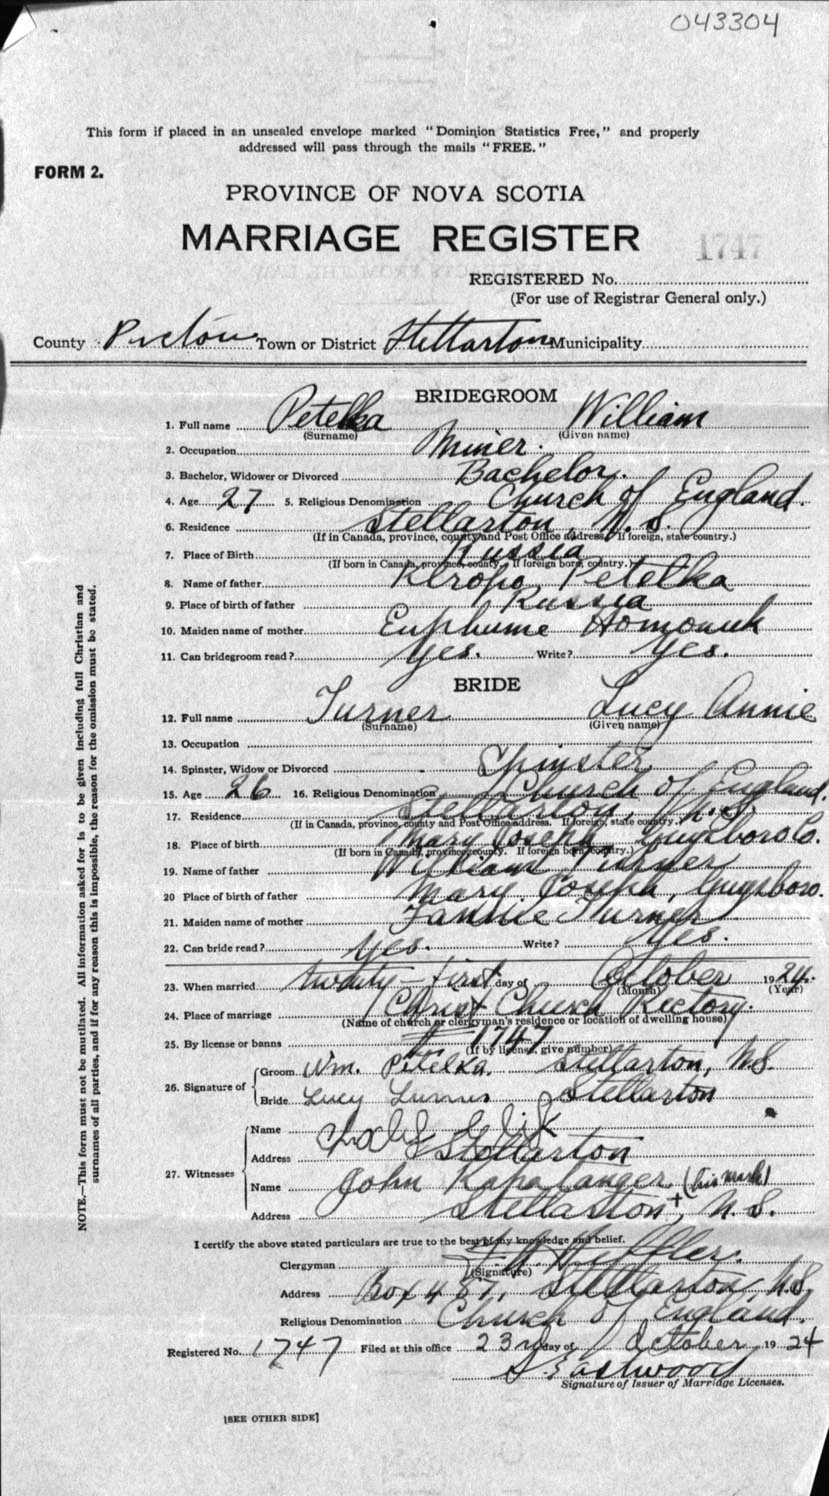 043304
This form if placed in an unsealed envelope marked "Dominion Statistics Free," and properly
addressed will pass through the mails "FREE."
FORM 2.
PROVINCE OF NOVA SCOTIA
MARRIAGE REGISTER
1747
REGISTERED No.
(For use of Registrar General only.)
County Pictou Town or District Stellarton Municipality
BRIDEGROOM
1. Full name Petelka William
(Surname) (Given name)
2. Occupation Miner.
3. Bachelor, Widower or Divorced Bachelor.
4. Age 27 5. Religious Denomination Church of England.
6. Residence Stellarton, N.S.
(If in Canada, province, county and Post Office address. If foreign, state country.)
7. Place of Birth Russia
(If born in Canada, province, county. If foreign born, country.)
8. Name of father Petelka
9. Place of birth of father Russia
10. Maiden name of mother Euphume Homonuk
11. Can bridegroom read? Yes. Write? Yes.
BRIDE
12. Full name Turner Lucy Annie
(Surname) (Given name)
13. Occupation
14. Spinster, Widow or Divorced Spinster
15. Age 26 16. Religious Denomination Church of England.
17. Residence Stellarton, N.S.
(If in Canada, province, county and Post Office address. If foreign, state country.)
18. Place of birth Mary Joseph, Guysboro Co.
(If born in Canada, province county. If foreign born, country.)
19. Name of father William Turner
20 Place of birth of father Mary Joseph, Guysboro.
21. Maiden name of mother Fannie Turner
22. Can bride read? Yes. Write? Yes.
23. When married twenty-first day of October 1924.
(Month) (Year)
24. Place of marriage Christ Church Rectory.
(Name of church or clergyman's residence or location of dwelling house)
25. By license or banns # 1747
(If by license, give number)
26. Signature of Groom Wm. Petelka. Stellarton, N.S.
Bride Lucy Turner Stellarton
27. Witnesses
Name
Address Stellarton
Name John (his mark)
Address Stellarton, + N.S.
I certify the above stated particulars are true to the best of my knowledge and belief.
Clergyman
(Signature)
Address Box 487, Stellarton, N.S.
Religious Denomination Church of England.
Registered No. 1747 Filed at this office 23rd day of October 1924
S. Eastwood
Signature of Issuer of Marriage Licenses.
[SEE OTHER SIDE]
NOTE.—This form must not be mutilated. All information asked for is to be given including full Christian and
surnames of all parties, and if for any reason this is impossible, the reason for the omission must be stated.